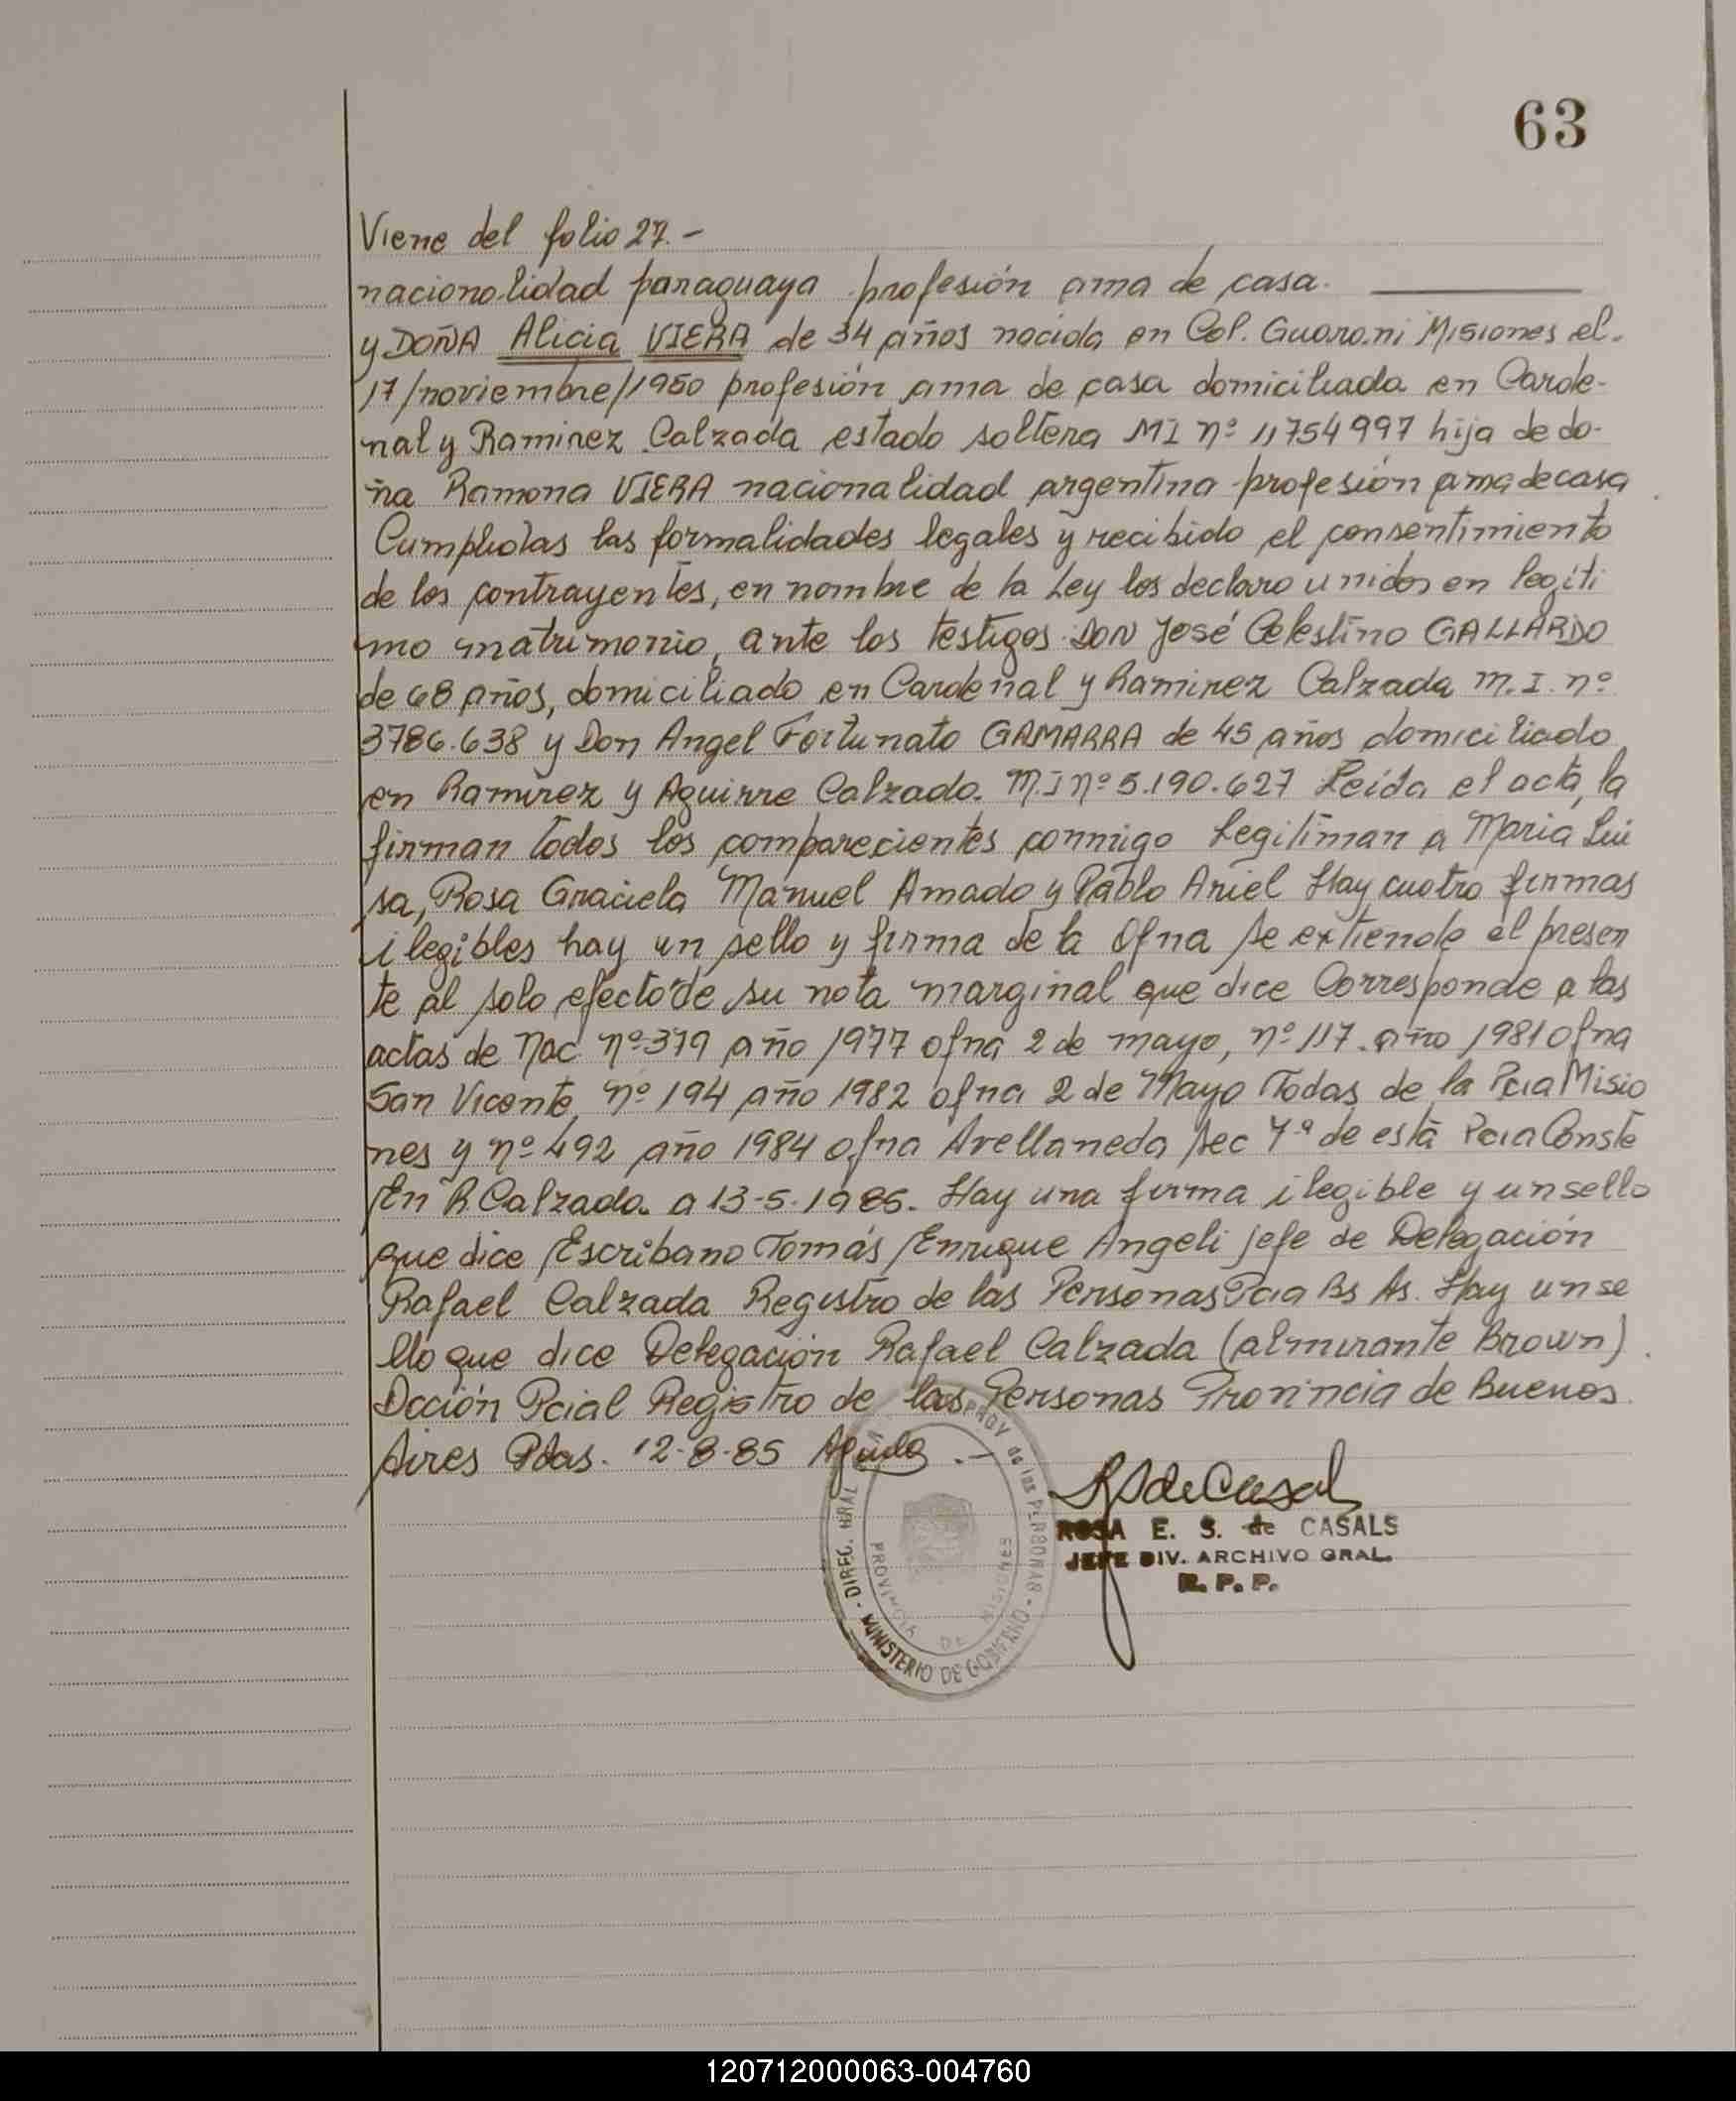 63
Viene del folio 27.-
nacionalidad paraguaya profesión ama de casa.
y DOÑA Alicia VIERA de 34 años nacida en Col. Guaraní Misiones el.
17/noviembre/1950 profesión ama de casa domiciliada en Carde-
nal y Ramirez Calzada estado soltera MI nº 11754997 hija de do-
ña Ramona VIERA nacionalidad argentina profesión ama de casa
Cumplidas las formalidades legales y recibido el consentimiento
de los contrayentes, en nombre de la Ley los declaro unidos en legíti
mo matrimonio, ante los testigos DON José Celestino GALLARDO
de 68 años, domiciliado en Cardenal y Ramirez Calzada M.I. nº
3786.638 y Don Angel Fortunato GAMARRA de 45 años domiciliado
en Ramirez y Aguirre Calzada. M.I nº 5.190.627 Leída el acta, la
firman todos los comparecientes conmigo Legitiman a Maria Lui
sa, Rosa Graciela Manuel Amado y Pablo Ariel Hay cuatro firmas
ilegibles hay un sello y firma de la Ofna Se extiende el presen
te al solo efecto de su nota marginal que dice Corresponde a las
actas de Nac nº 379 año 1977 ofna 2 de mayo, nº 117. año 1981 Ofna
San Vicente, nº 194 año 1982 ofna 2 de Mayo Todas de la Pcia Misio
nes y nº 492 año 1984 Ofna Avellaneda sec 7ª de esta Pcia Conste
En R Calzada. a 13-5-1985. Hay una firma ilegible y un sello
que dice Escribano Tomás Enrique Angeli jefe de Delegación
Rafael Calzada Registro de las Personas Pcia Bs As. Hay un se
llo que dice Delegación Rafael Calzada (almirante Brown).
Dcción Pcial Registro de las Personas Provincia de Buenos
Aires Pdas. 12-8-85
ROSA E. S. de CASALS
JEFE DIV. ARCHIVO GRAL.
R. P. P.
PROV de las PERSONAS - MINISTERIO DE GOBIERNO - DIREC. GRAL
PROVINCIA DE MISIONES
120712000063-004760